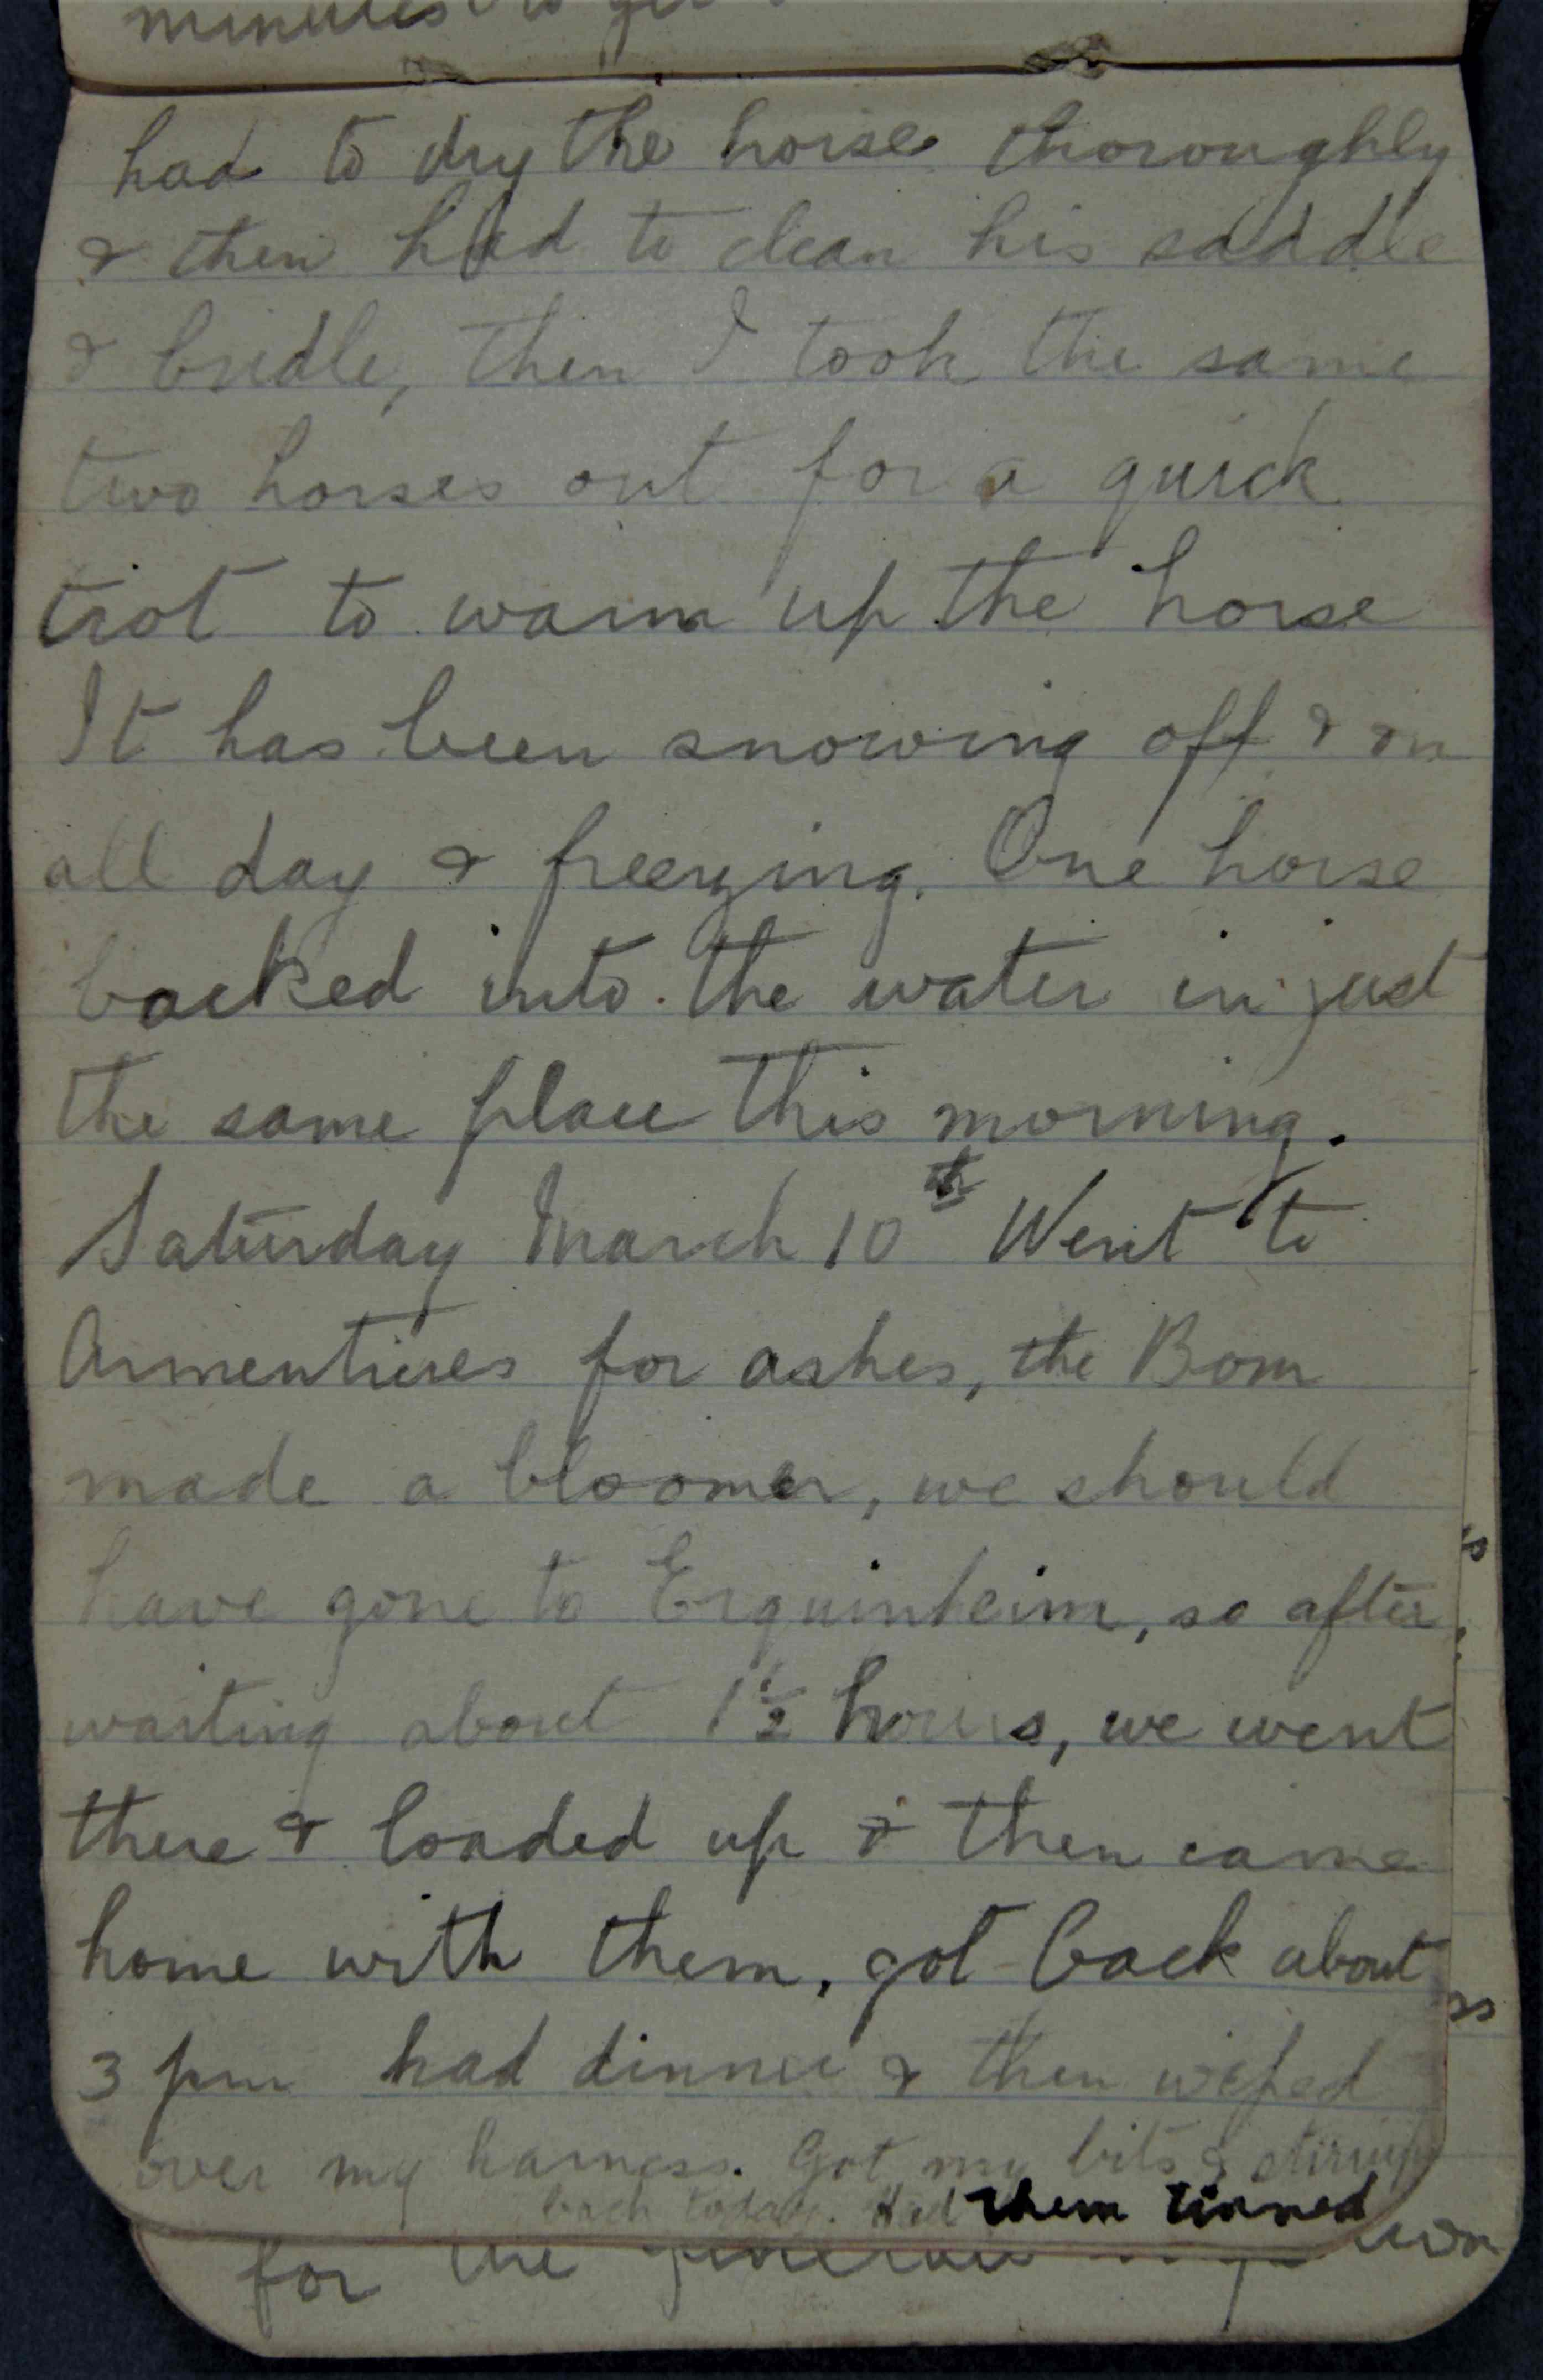 minutes to get
had to dry the horse thoroughly
& then had to clean his saddle
& bridle, then I took the same
two horses out for a quick
trot to warm up the horse
It has been snowing off & on
all day & freezing. One horse
backed into the water in just
the same place this morning.
Saturday March 10th Went to
Armentieres for ashes, the Bom
made a bloomer, we should
have gone to Erquinheim, so after
waiting about 1½ hours, we went
there & loaded up & then came
home with them, got back about
3 pm had dinner & then wiped
over my harness. Got my bits & stirrups
back today. Had them tinned
for the